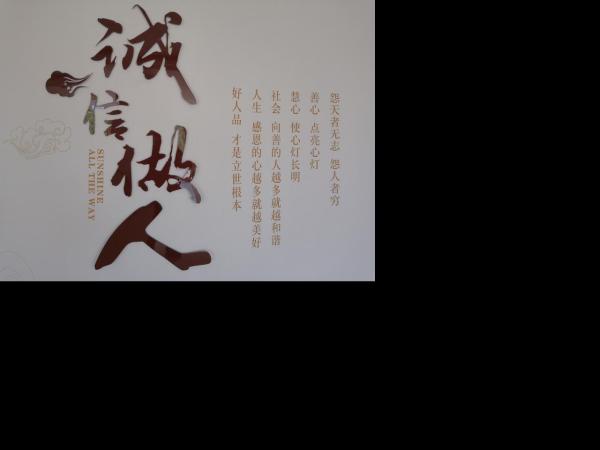 诚信做人
SUNSHINE
ALL THE WAY
怨天者无志 怨人者穷
善心 点亮心灯
慧心 使心灯长明
社会 向善的人越多就越和谐
人生 感恩的心越多就越美好
好人品 才是立世根本